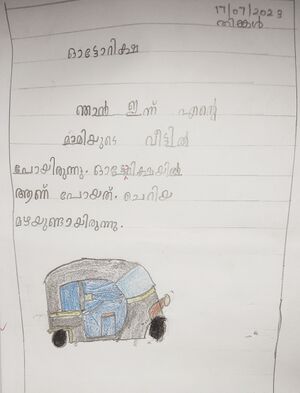 17/07/2023
തിങ്കൾ
ഓട്ടോറിക്ഷ
ഞാൻ ഇന്ന് എന്റെ
മാമിയുടെ വീട്ടിൽ
പോയിരുന്നു. ഓട്ടോറിക്ഷയിൽ
ആണ് പോയത്. ചെറിയ
മഴയുണ്ടായിരുന്നു.